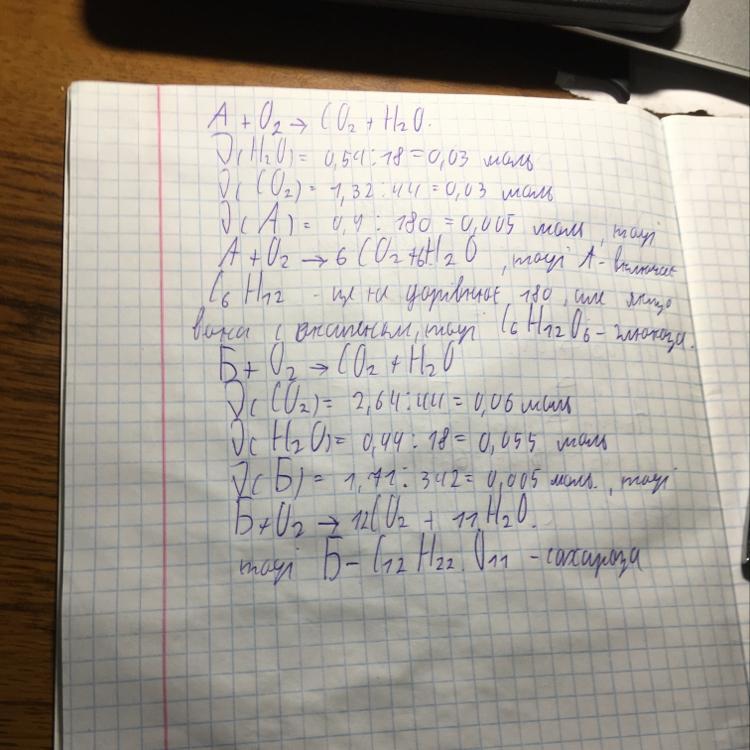 A + O₂ → CO₂ + H₂O.
ν(H₂O) = 0,54 : 18 = 0,03 моль
ν(CO₂) = 1,32 : 44 = 0,03 моль
ν(A) = 0,9 : 180 = 0,005 моль, тоді
A + O₂ → 6 CO₂ + 6H₂O, тоді A - включає
C₆H₁₂ - це не дорівнює 180, але якщо
вона є оксигеном, тоді C₆H₁₂O₆ - глюкоза.
Б + O₂ → CO₂ + H₂O
ν(CO₂) = 2,64 : 44 = 0,06 моль
ν(H₂O) = 0,44 : 18 = 0,055 моль
ν(Б) = 1,71 : 342 = 0,005 моль., тоді
Б + O₂ → 12CO₂ + 11H₂O.
тоді Б - C₁₂H₂₂O₁₁ - сахароза